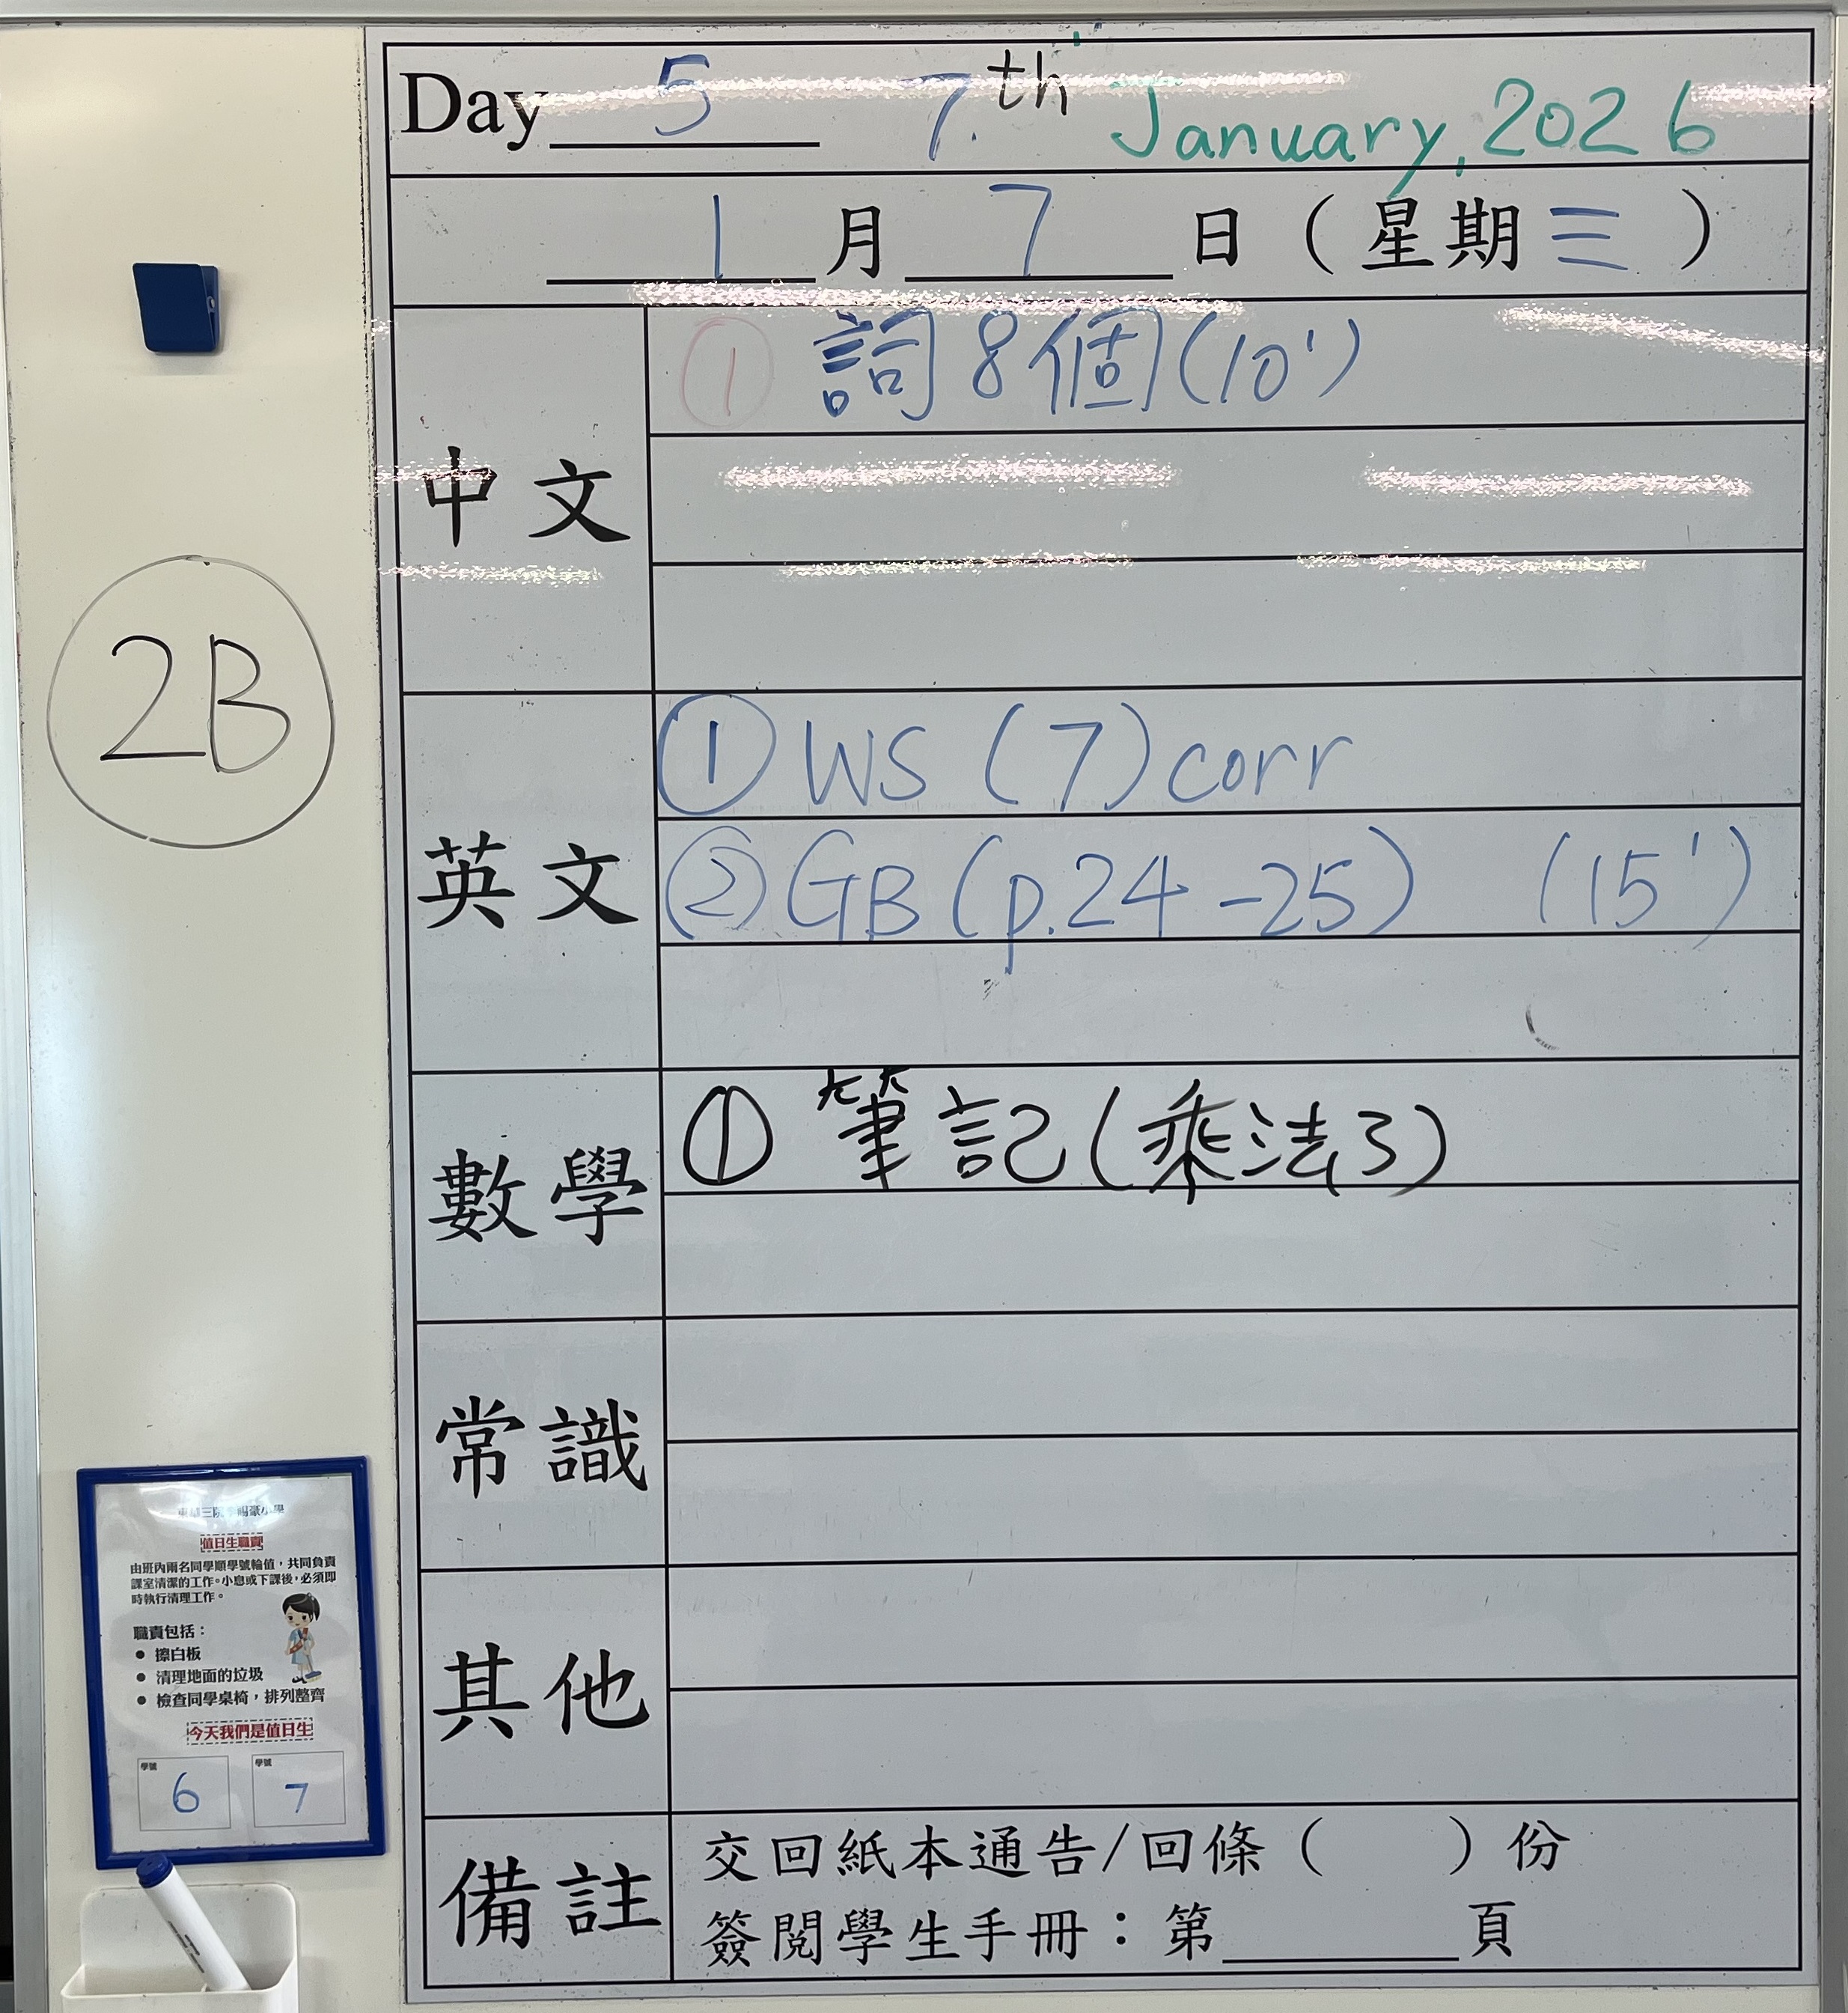 Day 5 7.th January, 2026
1 月 7 日 ( 星期三 )
中文
① 詞8個(10')
2B
英文
① WS (7) corr
② GB (p.24-25) (15')
數學
① 筆記(乘法3)
常識
其他
備註
交回紙本通告/回條 ( ) 份
簽閱學生手冊：第______頁
值日生職責
由班內兩名同學順學號輪值，共同負責
課室清潔的工作。小息或下課後，必須即
時執行清理工作。
職責包括：
● 擦白板
● 清理地面的垃圾
● 檢查同學桌椅，排列整齊
今天我們是值日生
學號 學號
6 7